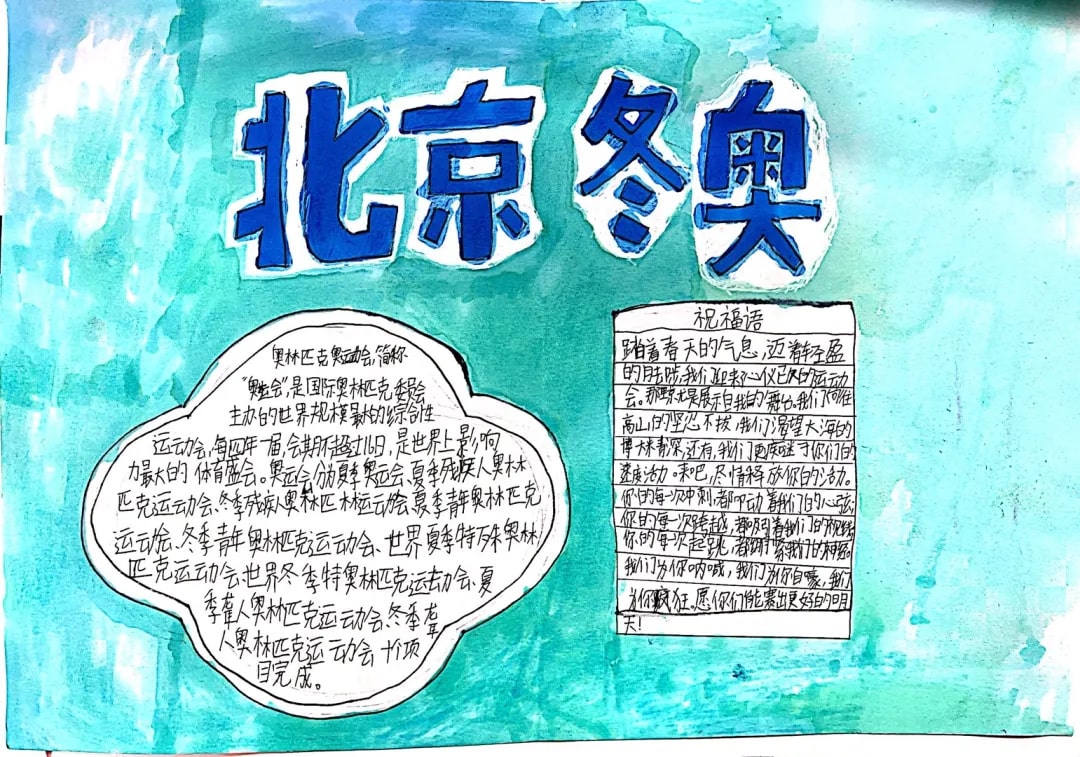 北京冬奥
奥林匹克运动会,简称
"奥运会",是国际奥林匹克委员会
主办的世界规模最大的综合性
运动会,每四年一届,会期不超过16日,是世界上影响
力最大的体育盛会。奥运会分为夏季奥运会、夏季残疾人奥林
匹克运动会、冬季残疾人奥林匹克运动会、夏季青年奥林匹克
运动会、冬季青年奥林匹克运动会、世界夏季特殊奥林
匹克运动会、世界冬季特奥林匹克运动会、夏
季聋人奥林匹克运动会、冬季聋
人奥林匹克运动会十项
目完成。
祝福语
踏着春天的气息,迈着轻盈
的月步,我们迎来心仪已久的运动
会。那是展示自我的舞台。我们
高山的坚忍不拔,我们渴望大海的
博大精深,还有,我们更痴迷于你们的
速度活力。来吧,尽情释放你的活力。
你的每一次冲刺,都叩动着我们的心弦;
你的每一次跨越,都吸引着我们的视线;
你的每一次起跳,都绷紧我们的神经。
我们为你呐喊,我们为你自豪,我们
为你疯狂。愿你们能赛出更好的明
天!